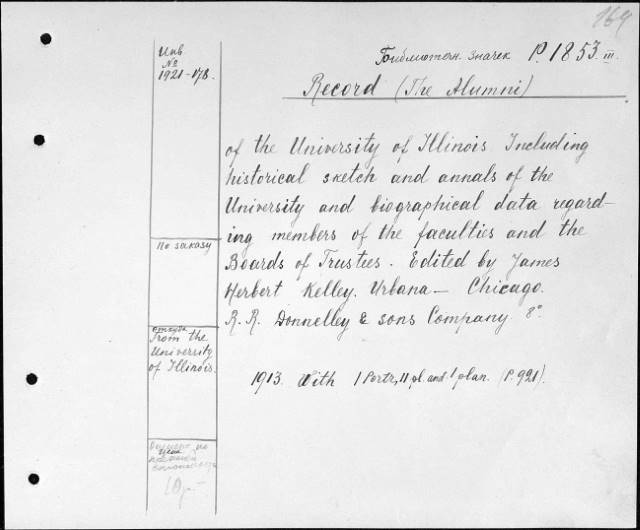 169
Библиотечн. значек P. 1853. III.
Record (The Alumni)
of the University of Illinois. Including
historical sketch and annals of the
University and biographical data regard-
ing members of the faculties and the
Boards of Trusties. Edited by James
Herbert Kelley. Urbana — Chicago.
R. R. Donnelley & sons Company 8°.
1913. With 1 Portr, 11 pl. and 1 plan. (P. 921).
Инв
№
1921-178.
По заказу
откуда
From the
University
of Illinois.
Цена
10 р. –